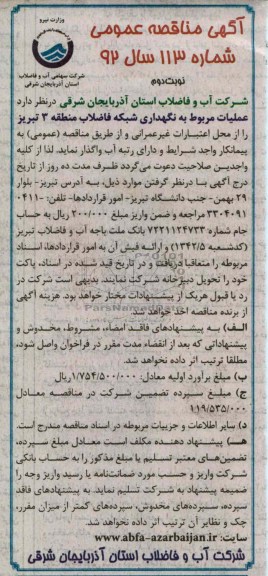 آگهی مناقصه عمومی
شماره ۱۱۳ سال ۹۲
نوبت دوم
وزارت نیرو
شرکت سهامی آب و فاضلاب
استان آذربایجان شرقی
شرکت آب و فاضلاب استان آذربایجان شرقی درنظر دارد
عملیات مربوط به نگهداری شبکه فاضلاب منطقه ۳ تبریز
را از محل اعتبارات غیرعمرانی و از طریق مناقصه (عمومی) به
پیمانکار واجد شرایط و دارای رتبه آب واگذار نماید. لذا از کلیه
واجدین صلاحیت دعوت می‌گردد ظرف مدت ده روز از تاریخ
درج آگهی با درنظر گرفتن موارد ذیل، به آدرس تبریز- بلوار
۲۹ بهمن- جنب دانشگاه تبریز- امور قراردادها- تلفن: ۰۴۱۱-
۳۳۰۴۰۹۱ مراجعه و ضمن واریز مبلغ ۲۰۰/۰۰۰ ریال به حساب
جام شماره ۷۲۲۱۱۲۴۷۳۳ بانک ملت باجه آب و فاضلاب تبریز
(کدشعبه ۱۳۴۲/۵) و ارائه فیش آن به امور قراردادها، اسناد
مربوطه را متعاقبا دریافت و در تاریخ قید شده در اسناد، پاکت
خود را تحویل دبیرخانه شرکت نمایند. بدیهی است شرکت در
رد یا قبول هریک از پیشنهادات مختار خواهد بود. هزینه آگهی
از برنده مناقصه اخذ خواهد شد.
الف) به پیشنهادهای فاقد امضاء، مشروط، مخدوش و
پیشنهاداتی که بعد از انقضاء مدت مقرر در فراخوان واصل شود،
مطلقا ترتیب اثر داده نخواهد شد.
ب) مبلغ برآورد اولیه معادل: ۱/۷۵۴/۵۰۰/۰۰۰ ریال
ج) مبلغ سپرده تضمین شرکت در مناقصه معادل
۱۱۹/۵۳۵/۰۰۰
د) سایر اطلاعات و جزییات مربوطه در اسناد مناقصه مندرج است.
هـ) پیشنهاد دهنده مکلف است معادل مبلغ سپرده،
تضمین‌های معتبر تسلیم یا مبلغ مذکور را به حساب بانکی
شرکت واریز و حسب مورد ضمانت‌نامه یا رسید واریز وجه را
ضمیمه پیشنهاد به شرکت تسلیم نماید. به پیشنهادهای فاقد
سپرده، سپرده‌های مخدوش، سپرده‌های کمتر از میزان مقرر،
چک و نظایر آن ترتیب اثر داده نخواهد شد.
سایت: www.abfa-azarbaijan.ir
شرکت آب و فاضلاب استان آذربایجان شرقی